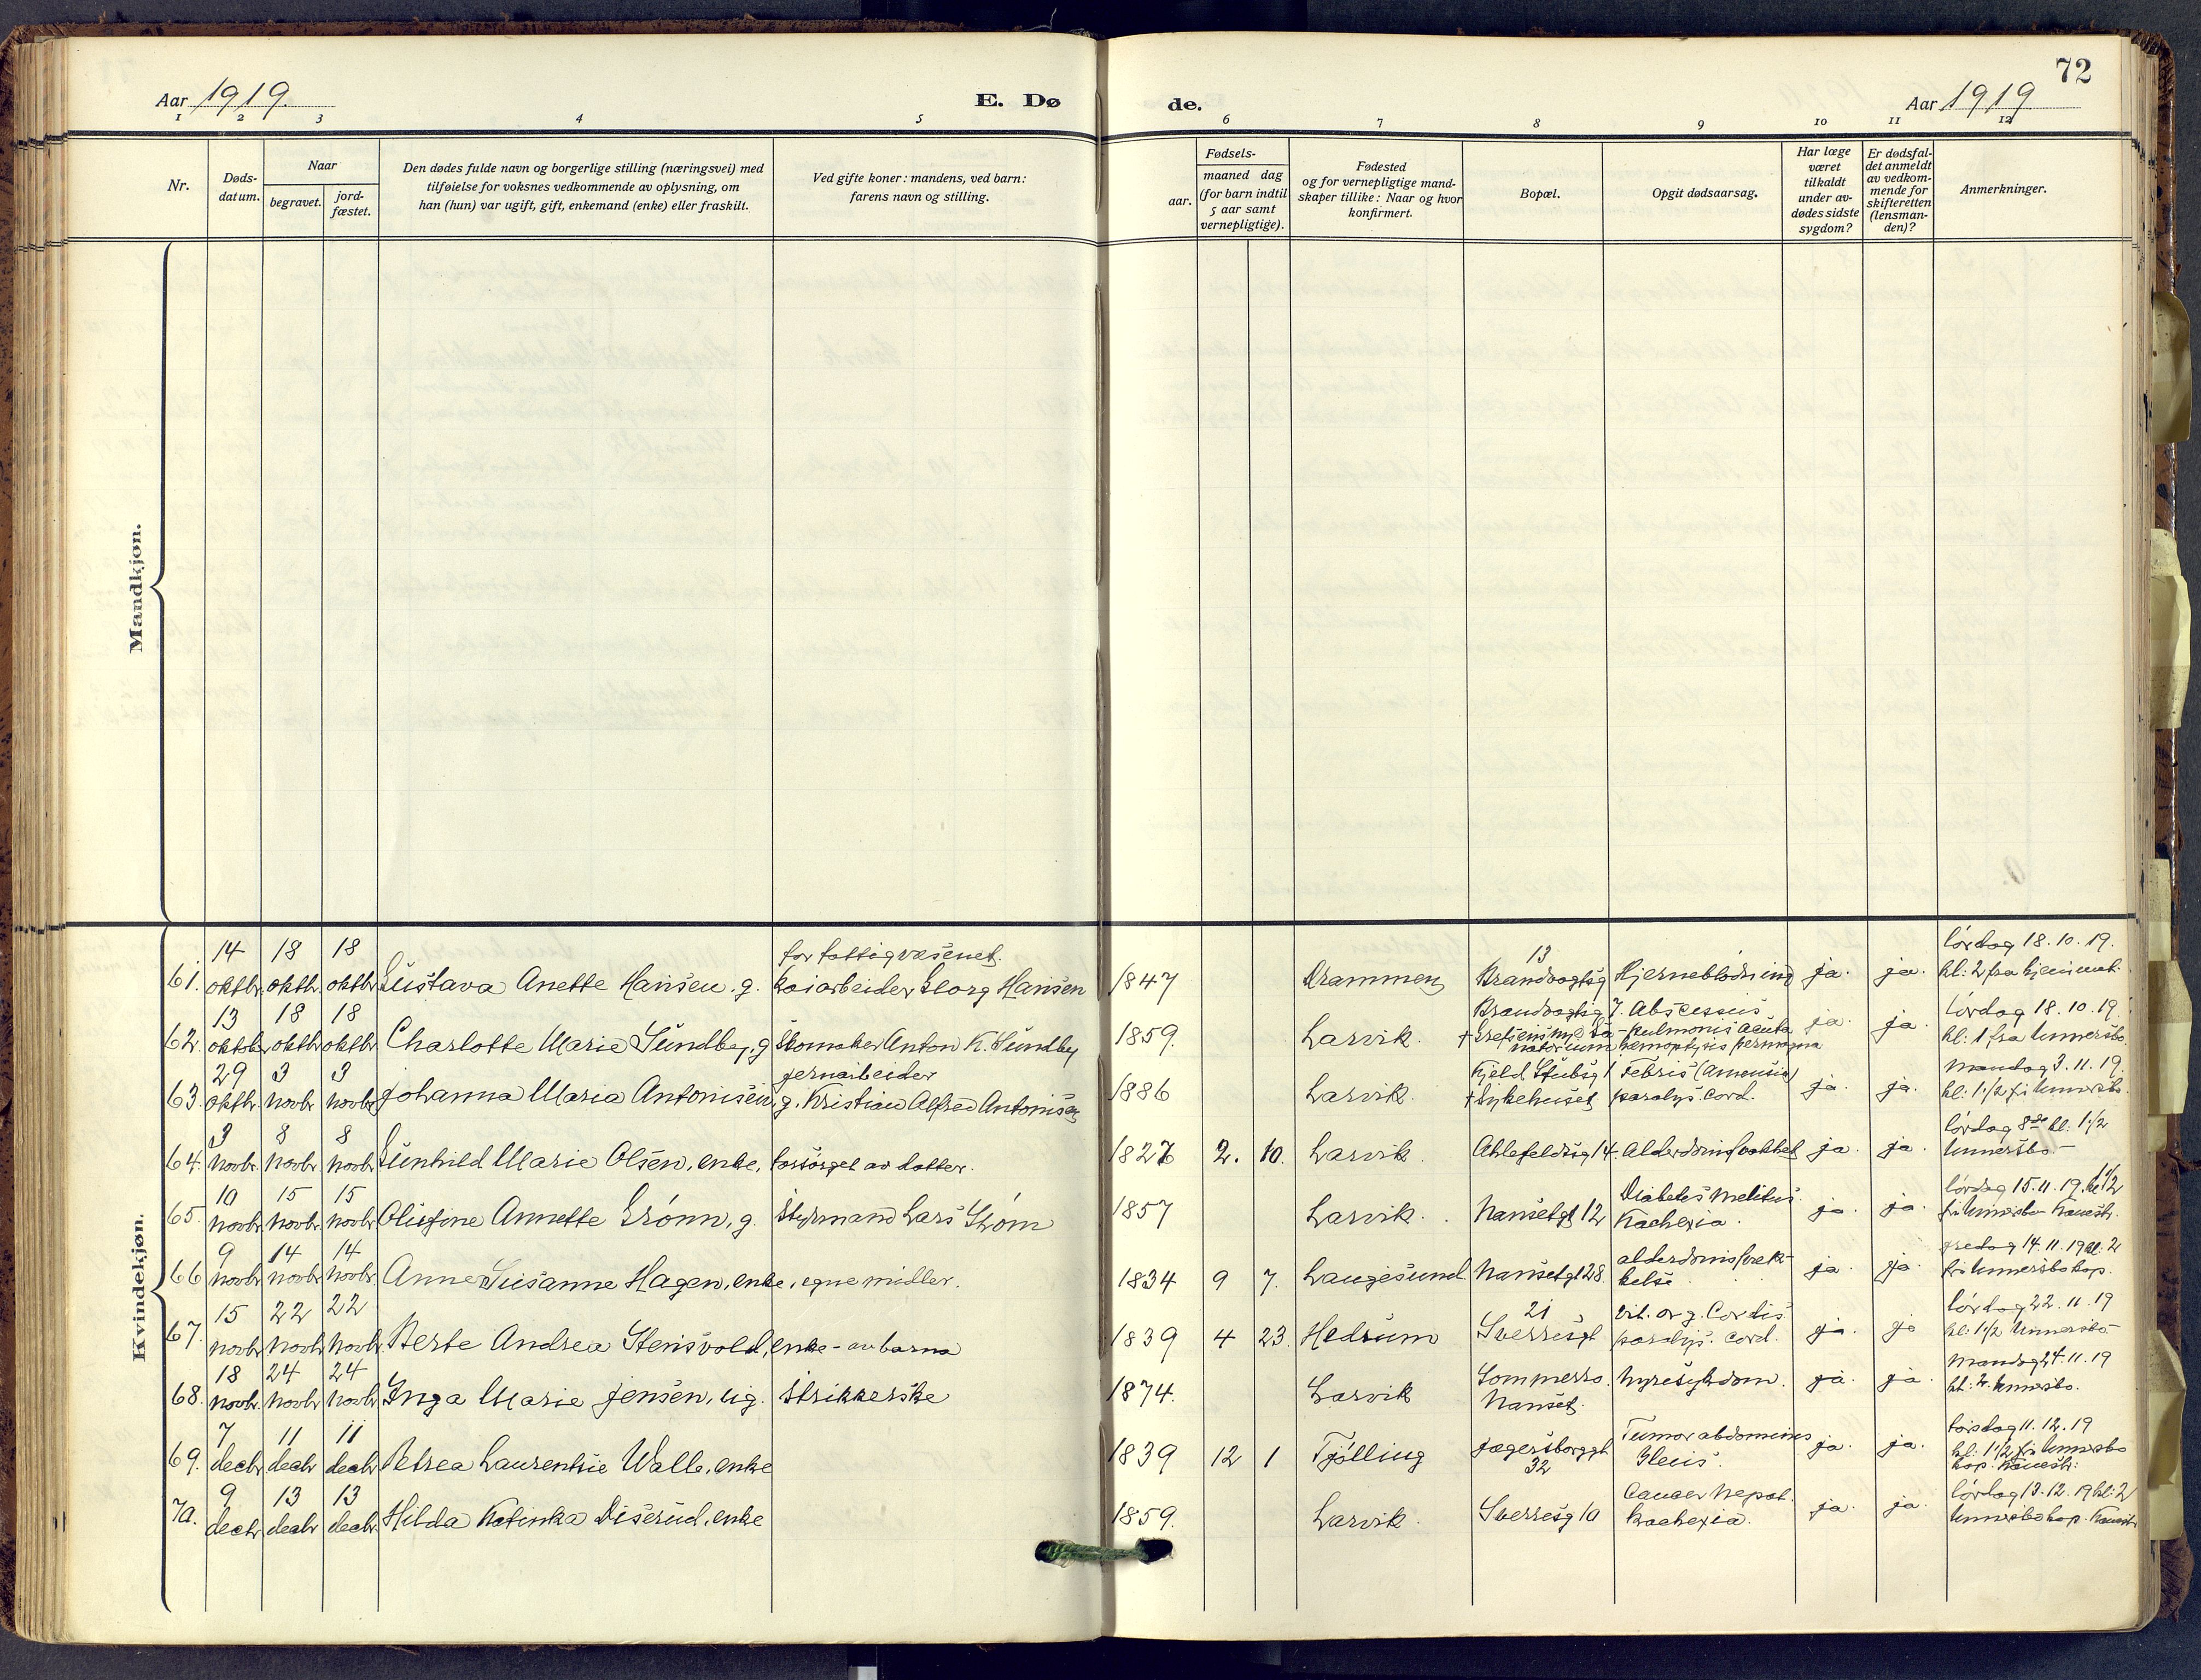 72
Aar 1919.
E. Dø
de.
Aar 1919
1 2 3 4 5 6 7 8 9 10 11 12
Nr.
Døds-
datum.
Naar
begravet.
jord-
fæstet.
Den dødes fulde navn og borgerlige stilling (næringsvei) med
tilføielse for voksnes vedkommende av oplysning, om
han (hun) var ugift, gift, enkemand (enke) eller fraskilt.
Ved gifte koner: mandens, ved barn:
farens navn og stilling.
Fødsels-
aar.
maaned dag
(for barn indtil
5 aar samt
vernepligtige).
Fødested
og for vernepligtige mand-
skaper tillike: Naar og hvor
konfirmert.
Bopæl.
Opgit dødsaarsag.
Har læge
været
tilkaldt
under av-
dødes sidste
sygdom?
Er dødsfal-
det anmeldt
av vedkom-
mende for
skifteretten
(lensman-
den)?
Anmerkninger.
Mandkjøn.
Kvindekjøn.
14 18 18 for fattigvæsenet. 13 lørdag 18.10.19.
61. oktbr. oktbr. oktbr. Gustava Anette Hansen. g. Kaiarbeider Georg Hansen 1847 Drammen Brandvogtsg Hjerneblødning ja. ja. kl: 2 fra hjemmet.
13 18 18 Brandvogtsg 7. Abscessus lørdag 18.10.19.
62. oktbr oktbr oktbr Charlotte Marie Sundby, g Skomaker Anton K. Sundby 1859. Larvik. -pulmonis acuta ja. ja. kl: 1 fra
natorium hemoptysis permagna
29 3 3 jernarbeider Kjeld Stubsg 1 Febris mandag 3.11.19.
63. oktbr. novbr novbr Johanna Maria Antonisen, g. Kristian Alfred Antonisen 1886 Larvik. +Sykehuset paralys. cord. ja. ja. kl: 1 1/2
3 8 8 lørdag 8de kl: 1 1/2
64. novbr. novbr novbr Gunhild Marie Olsen, enke, forsørget av datter. 1827 2. 10. Larvik. Ahlefeldtsg 14. Alderdomssvakhet ja. ja.
10 15 15 Diabetes melitus. lørdag 15.11.19.
65. novbr. novbr novbr Olufine Annette Grønn, g. Styrmand Lars Grøm 1857 Larvik. Nansetgt 12 Kachexia. ja. ja.
9 14 14 alderdomssvek- fredag 14.11.19 kl: 2
66 novbr novbr novbr. Anne Susanne Hagen, enke, egne midler. 1834 9 7. Langesund Nansetgt 28. kelse ja. ja.
15 22 22 21 Vit. org. Cordis lørdag 22.11.19
67. novbr novbr novbr. Berte Andrea Stensvold, enke - av barna 1839 4 23. Hedrum Sverresgt paralys. cord. ja. ja kl: 1 1/2
18 24 24 Sommerro. mandag 24.11.19
68. novbr. novbr novbr Inga Marie Jensen, ug. Strikkerske 1874. Larvik Nanset. Nyresykdom. ja. ja. kl: 2.
7 11 11 Tumor abdominis torsdag 11.12.19
69. decbr decbr decbr Petrea Laurentsie Walle, enke 1839 12 1 Tjølling Jegersborggt. Ileus. ja. ja.
32
9 13 13 Cancer hepat. lørdag 13.12.19 kl: 2
70. decbr decbr decbr. Hilda Katinka Diserud, enke 1859. Larvik. Sverresg 10 Kachexia. ja. ja.